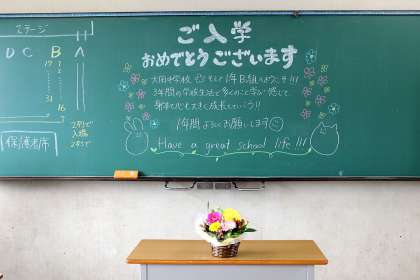 ステージ
D C B A
17 1
31 16
2列で
入場
2列で
保護者席
ご入学
おめでとうございます
大田中学校、そして1年B組にようこそ!!!
3年間の学校生活で多くのこと学び感じて、
身体も心も大きく成長していこう!!
1年間よろしくお願いします
Have a great school life !!!